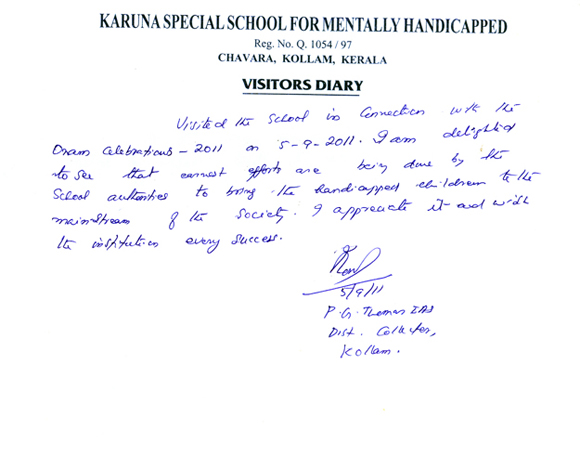 KARUNA SPECIAL SCHOOL FOR MENTALLY HANDICAPPED
Reg. No. Q. 1054 / 97
CHAVARA, KOLLAM, KERALA
VISITORS DIARY
Visited the School in Connection with the
Onam Celebrations - 2011 on 5-9-2011. I am delighted
to see that earnest efforts are being done by the
School authorities to bring the handicapped children to the
mainstream of the Society. I appreciate it and wish
the institution every success.
5/9/11
P. G. Thomas IAS
Dist. Collector,
Kollam.